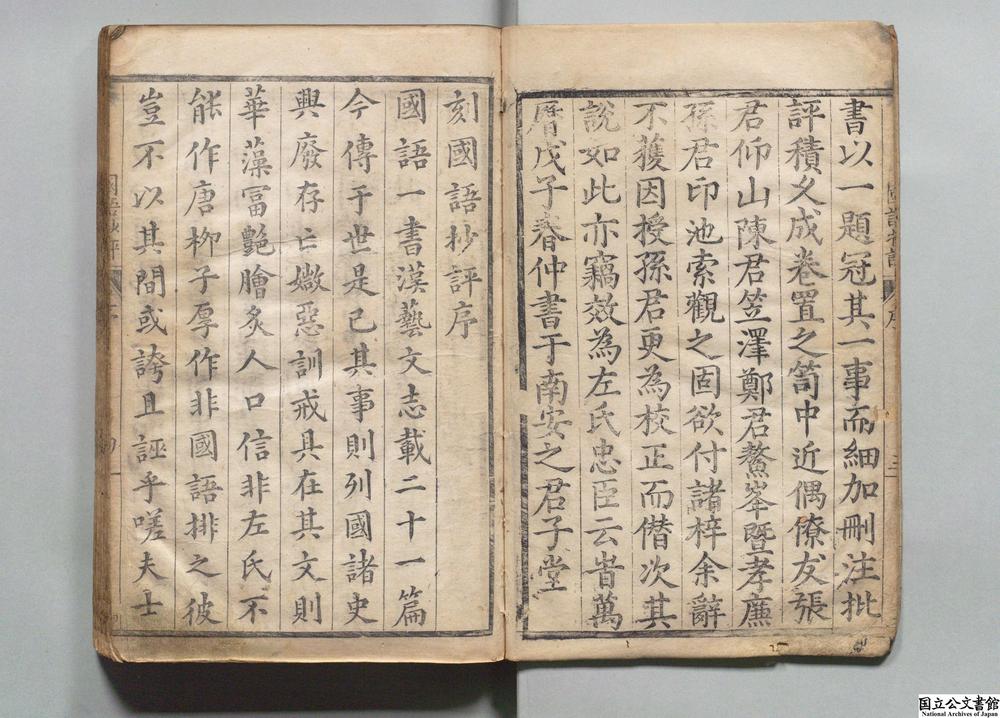 書以一題冠其一事而細加刪注批
評積久成卷置之笥中近偶僚友張
君仰山陳君笠澤鄭君鰲峯暨孝廉
孫君印池索觀之固欲付諸梓余辭
不獲因授孫君更為校正而僭次其
說如此亦竊效為左氏忠臣云旹萬
曆戊子春仲書于南安之君子堂
刻國語抄評序
國語一書漢藝文志載二十一篇
今傳于世是已其事則列國諸史
興廢存亡媺惡訓戒具在其文則
華藻冨艷膾炙人口信非左氏不
能作唐柳子厚作非國語排之彼
豈不以其間或誇且誣乎嗟夫士
国立公文書館
National Archives of Japan